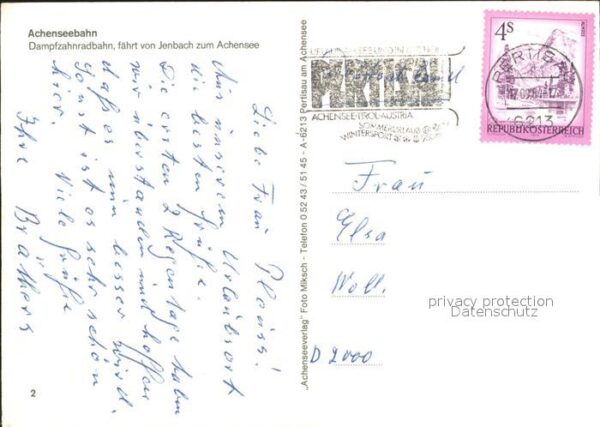 Achenseebahn
Dampfzahnradbahn, fährt von Jenbach zum Achensee
Liebe Frau
Aus unserem Urlaubsort
die besten Grüße.
Die ersten 2 Regentage haben
wir überstanden und hoffen
daß es nun besser wird.
Sonst ist es sehr schön
hier. Viele Grüße
Ihre
2
„Achenseeverlag" Foto Miksch - Telefon 0 52 43 / 51 45 - A-6213 Pertisau am Achensee
PERTISAU
ACHENSEE-TIROL-AUSTRIA
SOMMERURLAUB
WINTERSPORT
PERTISAU
6213
4S
REPUBLIK ÖSTERREICH
Frau
Elsa
D 2000
privacy protection
Datenschutz